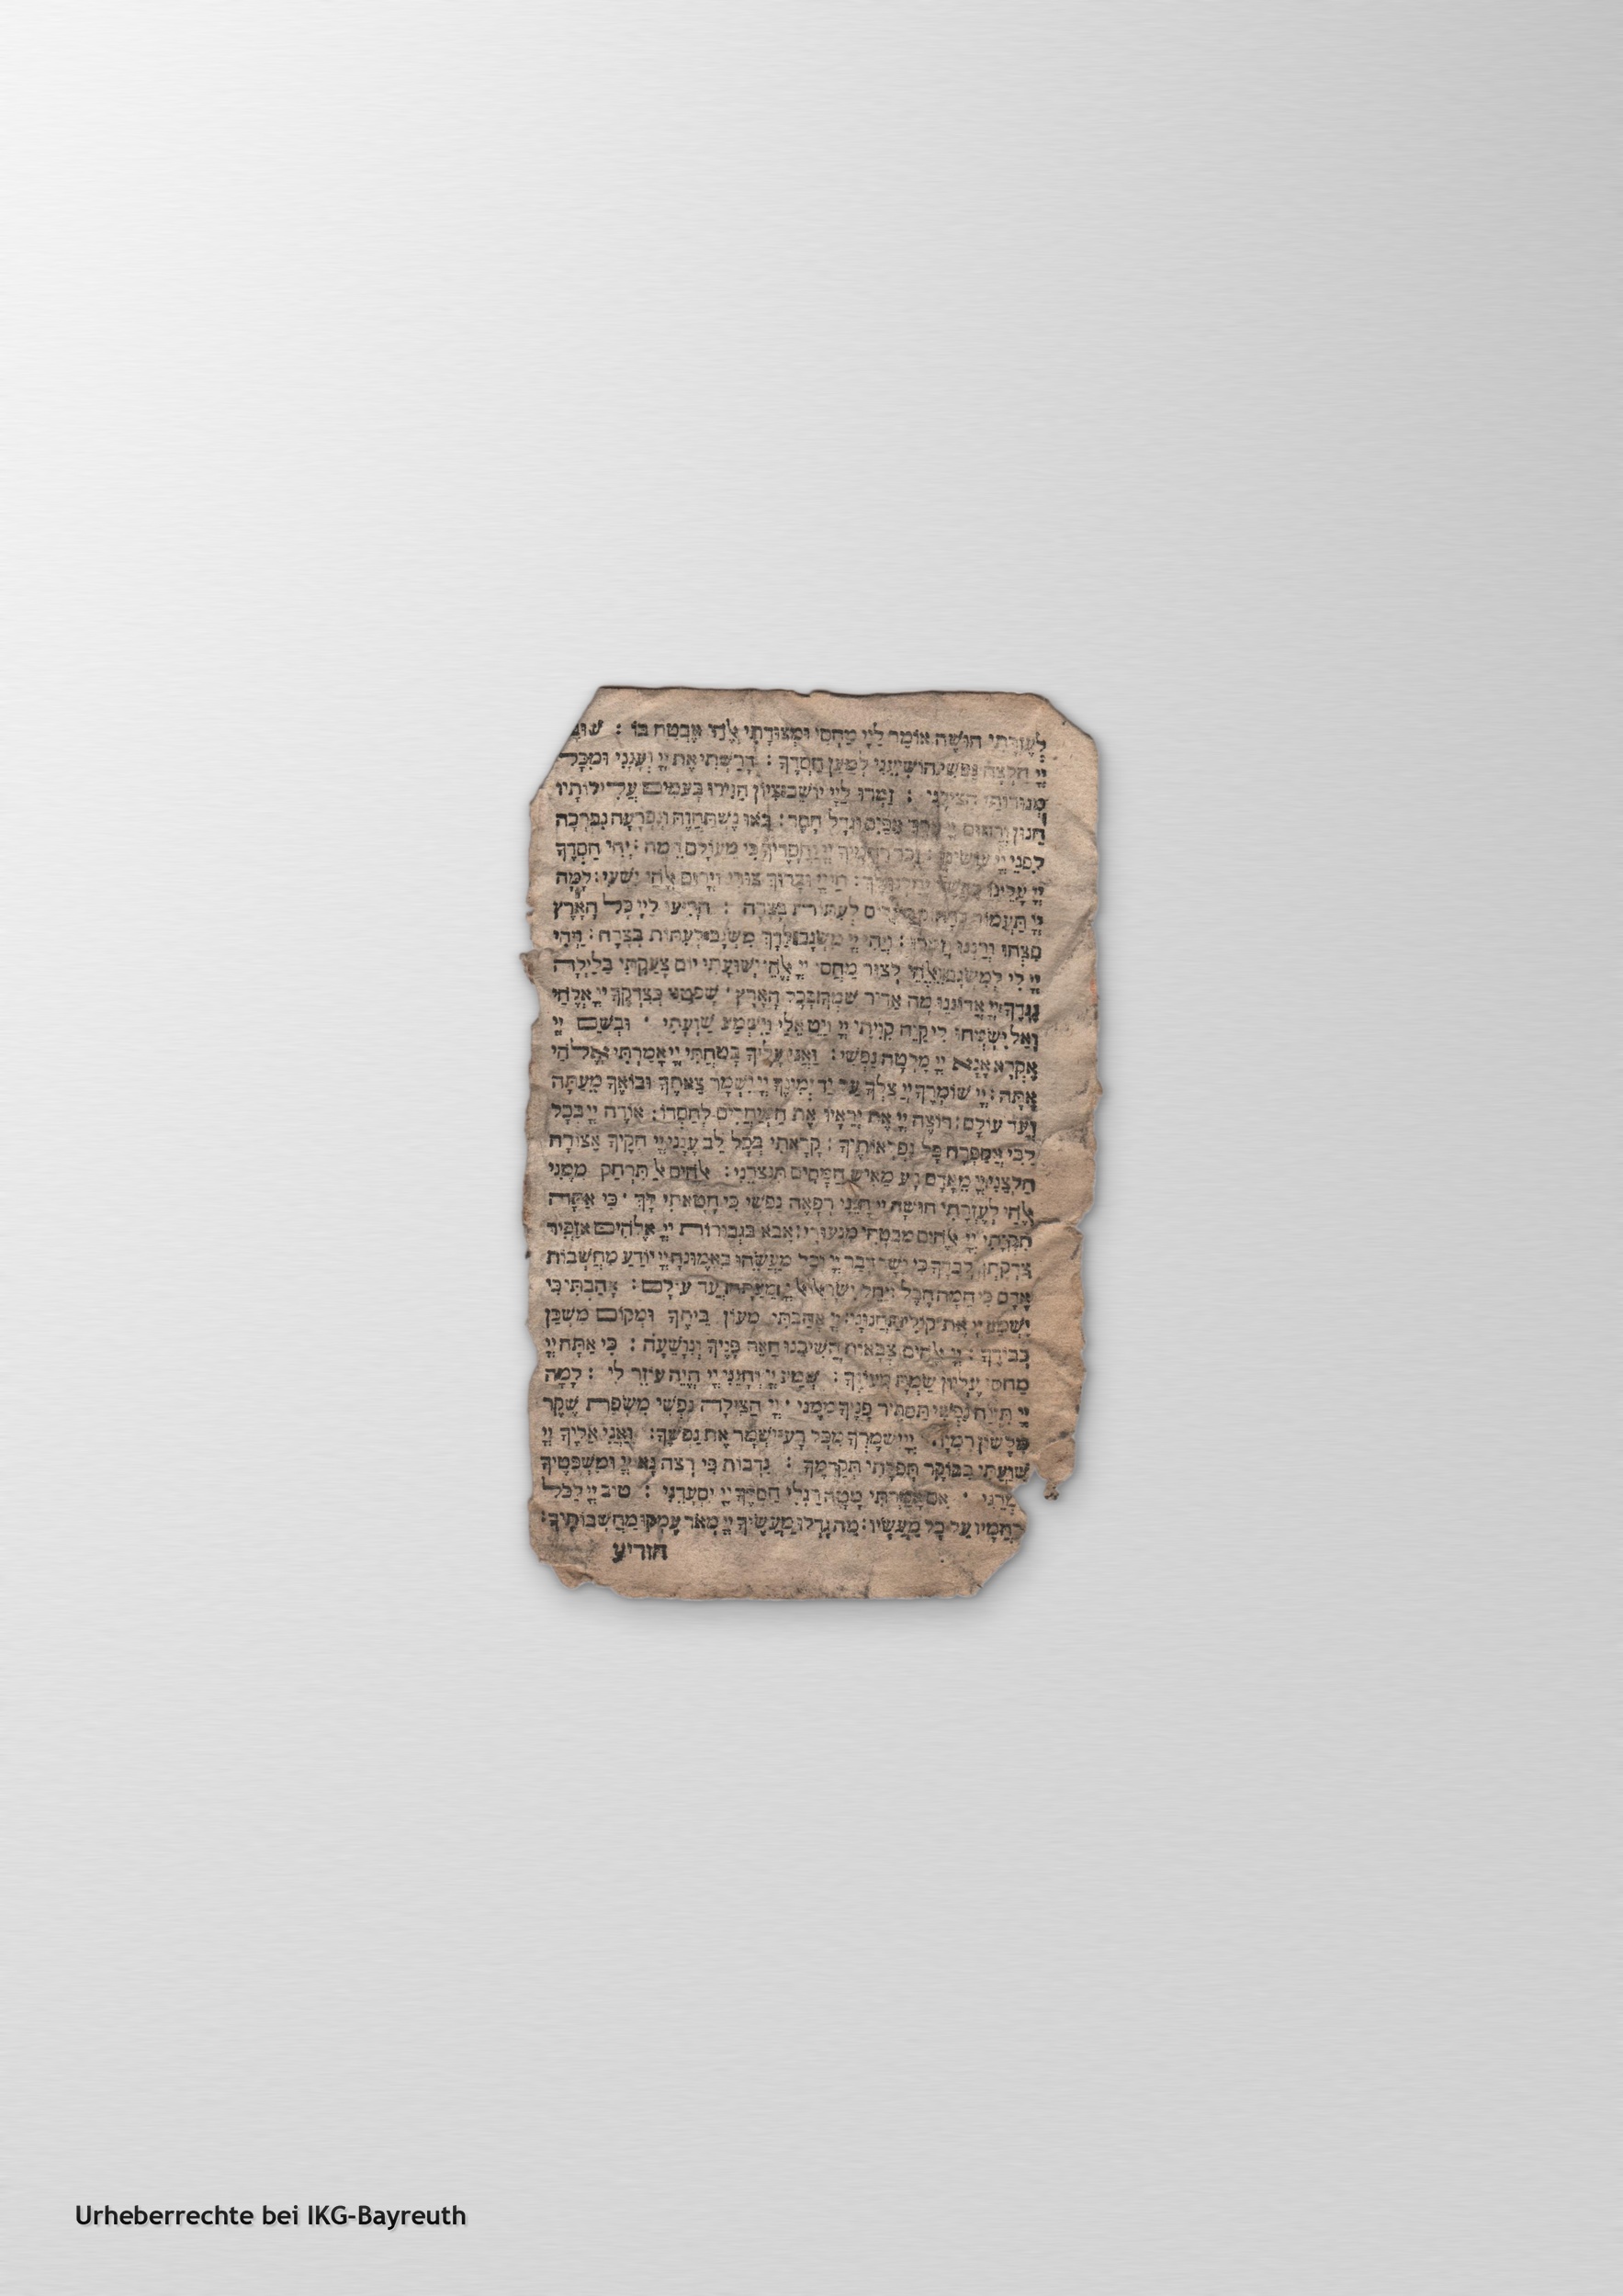 לְעֶזְרָתִי חוּשָׁה אוֹמַר לַיְיָ מַחְסִי וּמְצוּדָתִי אֱלֹהַי אֶבְטַח בּוֹ : שׁוּבָה
יְיָ חַלְּצָה נַפְשִׁי הוֹשִׁיעֵנִי לְמַעַן חַסְדֶּךָ : דָּרַשְׁתִּי אֶת יְיָ וְעָנָנִי וּמִכָּל
מְגוּרוֹתַי הִצִּילָנִי : זַמְּרוּ לַיְיָ יוֹשֵׁב צִיּוֹן הַגִּידוּ בָעַמִּים עֲלִילוֹתָיו
חַנּוּן וְרַחוּם יְיָ אֶרֶךְ אַפַּיִם וּגְדָל חָסֶד : בֹּאוּ נִשְׁתַּחֲוֶה וְנִכְרָעָה נִבְרְכָה
לִפְנֵי יְיָ עוֹשֵׂינוּ : זְכֹר רַחֲמֶיךָ יְיָ וַחֲסָדֶיךָ כִּי מֵעוֹלָם הֵמָּה : יְהִי חַסְדְּךָ
יְיָ עָלֵינוּ כַּאֲשֶׁר יִחַלְנוּ לָךְ : חַי יְיָ וּבָרוּךְ צוּרִי וְיָרוּם אֱלֹהֵי יִשְׁעִי : לָמָה
יְיָ תַּעֲמוֹד בְּרָחוֹק תַּעְלִים לְעִתּוֹת בַּצָּרָה : הָרִיעוּ לַיְיָ כָּל הָאָרֶץ
פִּצְחוּ וְרַנְּנוּ וְזַמֵּרוּ : וִיהִי יְיָ מִשְׂגָּב לַדָּךְ מִשְׂגָּב לְעִתּוֹת בַּצָּרָה : וַיְהִי
יְיָ לִי לְמִשְׂגָּב וֵאלֹהַי לְצוּר מַחְסִי יְיָ אֱלֹהֵי יְשׁוּעָתִי יוֹם צָעַקְתִּי בַלַּיְלָה
נֶגְדֶּךָ יְיָ אֲדוֹנֵנוּ מָה אַדִּיר שִׁמְךָ בְּכָל הָאָרֶץ · שָׁפְטֵנִי כְצִדְקְךָ יְיָ אֱלֹהַי
וְאַל יִשְׂמְחוּ לִי קַוֹּה קִוִּיתִי יְיָ וַיֵּט אֵלַי וַיִּשְׁמַע שַׁוְעָתִי · וּבְשֵׁם יְיָ
אֶקְרָא אָנָּא יְיָ מַלְּטָה נַפְשִׁי : וַאֲנִי עָלֶיךָ בָטַחְתִּי יְיָ אָמַרְתִּי אֱלֹהַי
אָתָּה : יְיָ שׁוֹמְרֶךָ יְיָ צִלְּךָ עַל יַד יְמִינֶךָ יְיָ יִשְׁמָר צֵאתְךָ וּבוֹאֶךָ מֵעַתָּה
וְעַד עוֹלָם : רוֹצֶה יְיָ אֶת יְרֵאָיו אֶת הַמְיַחֲלִים לְחַסְדּוֹ : אוֹדֶה יְיָ בְּכָל
לִבִּי אֲסַפְּרָה כָּל נִפְלְאוֹתֶיךָ : קָרָאתִי בְכָל לֵב עֲנֵנִי יְיָ חֻקֶּיךָ אֶצּוֹרָה
חַלְּצֵנִי יְיָ מֵאָדָם רָע מֵאִישׁ חֲמָסִים תִּנְצְרֵנִי : אֱלֹהִים אַל תִּרְחַק מִמֶּנִּי
אֱלֹהַי לְעֶזְרָתִי חוּשָׁה יְיָ חָנֵּנִי רְפָאָה נַפְשִׁי כִּי חָטָאתִי לָךְ · כִּי אַתָּה
תִקְוָתִי יְיָ אֱלֹהִים מִבְטַחִי מִנְּעוּרָי : אָבֹא בִּגְבוּרוֹת יְיָ אֱלֹהִים אַזְכִּיר
צִדְקָתְךָ לְבַדֶּךָ כִּי יָשָׁר דְּבַר יְיָ וְכָל מַעֲשֵׂהוּ בֶּאֱמוּנָה יְיָ יוֹדֵעַ מַחְשְׁבוֹת
אָדָם כִּי הֵמָּה הָבֶל יַחֵל יִשְׂרָאֵל אֶל יְיָ מֵעַתָּה וְעַד עוֹלָם : אָהַבְתִּי כִּי
יִשְׁמַע יְיָ אֶת קוֹלִי תַּחֲנוּנָי יְיָ אָהַבְתִּי מְעוֹן בֵּיתֶךָ וּמְקוֹם מִשְׁכַּן
כְּבוֹדֶךָ : יְיָ אֱלֹהִים צְבָאוֹת הֲשִׁיבֵנוּ הָאֵר פָּנֶיךָ וְנִוָּשֵׁעָה : כִּי אַתָּה יְיָ
מַחְסִי עֶלְיוֹן שַׂמְתָּ מְעוֹנֶךָ : שְׁמַע יְיָ וְחָנֵּנִי יְיָ הֱיֵה עוֹזֵר לִי : לָמָה
יְיָ תִּזְנַח נַפְשִׁי תַּסְתִּיר פָּנֶיךָ מִמֶּנִּי · יְיָ הַצִּילָה נַפְשִׁי מִשְּׂפַת שֶׁקֶר
מִלָּשׁוֹן רְמִיָּה · יְיָ יִשְׁמָרְךָ מִכָּל רָע יִשְׁמֹר אֶת נַפְשֶׁךָ : וַאֲנִי אֵלֶיךָ יְיָ
שִׁוַּעְתִּי בַבּוֹקֶר תְּפִלָּתִי תְקַדְּמֶךָּ : נִדְבוֹת פִּי רְצֵה נָא יְיָ וּמִשְׁפָּטֶיךָ
לַמְּדֵנִי · אִם אָמַרְתִּי מָטָה רַגְלִי חַסְדְּךָ יְיָ יִסְעָדֵנִי : טוֹב יְיָ לַכֹּל
וְרַחֲמָיו עַל כָּל מַעֲשָׂיו : מַה גָּדְלוּ מַעֲשֶׂיךָ יְיָ מְאֹד עָמְקוּ מַחְשְׁבוֹתֶיךָ :
תודיע
Urheberrechte bei IKG-Bayreuth